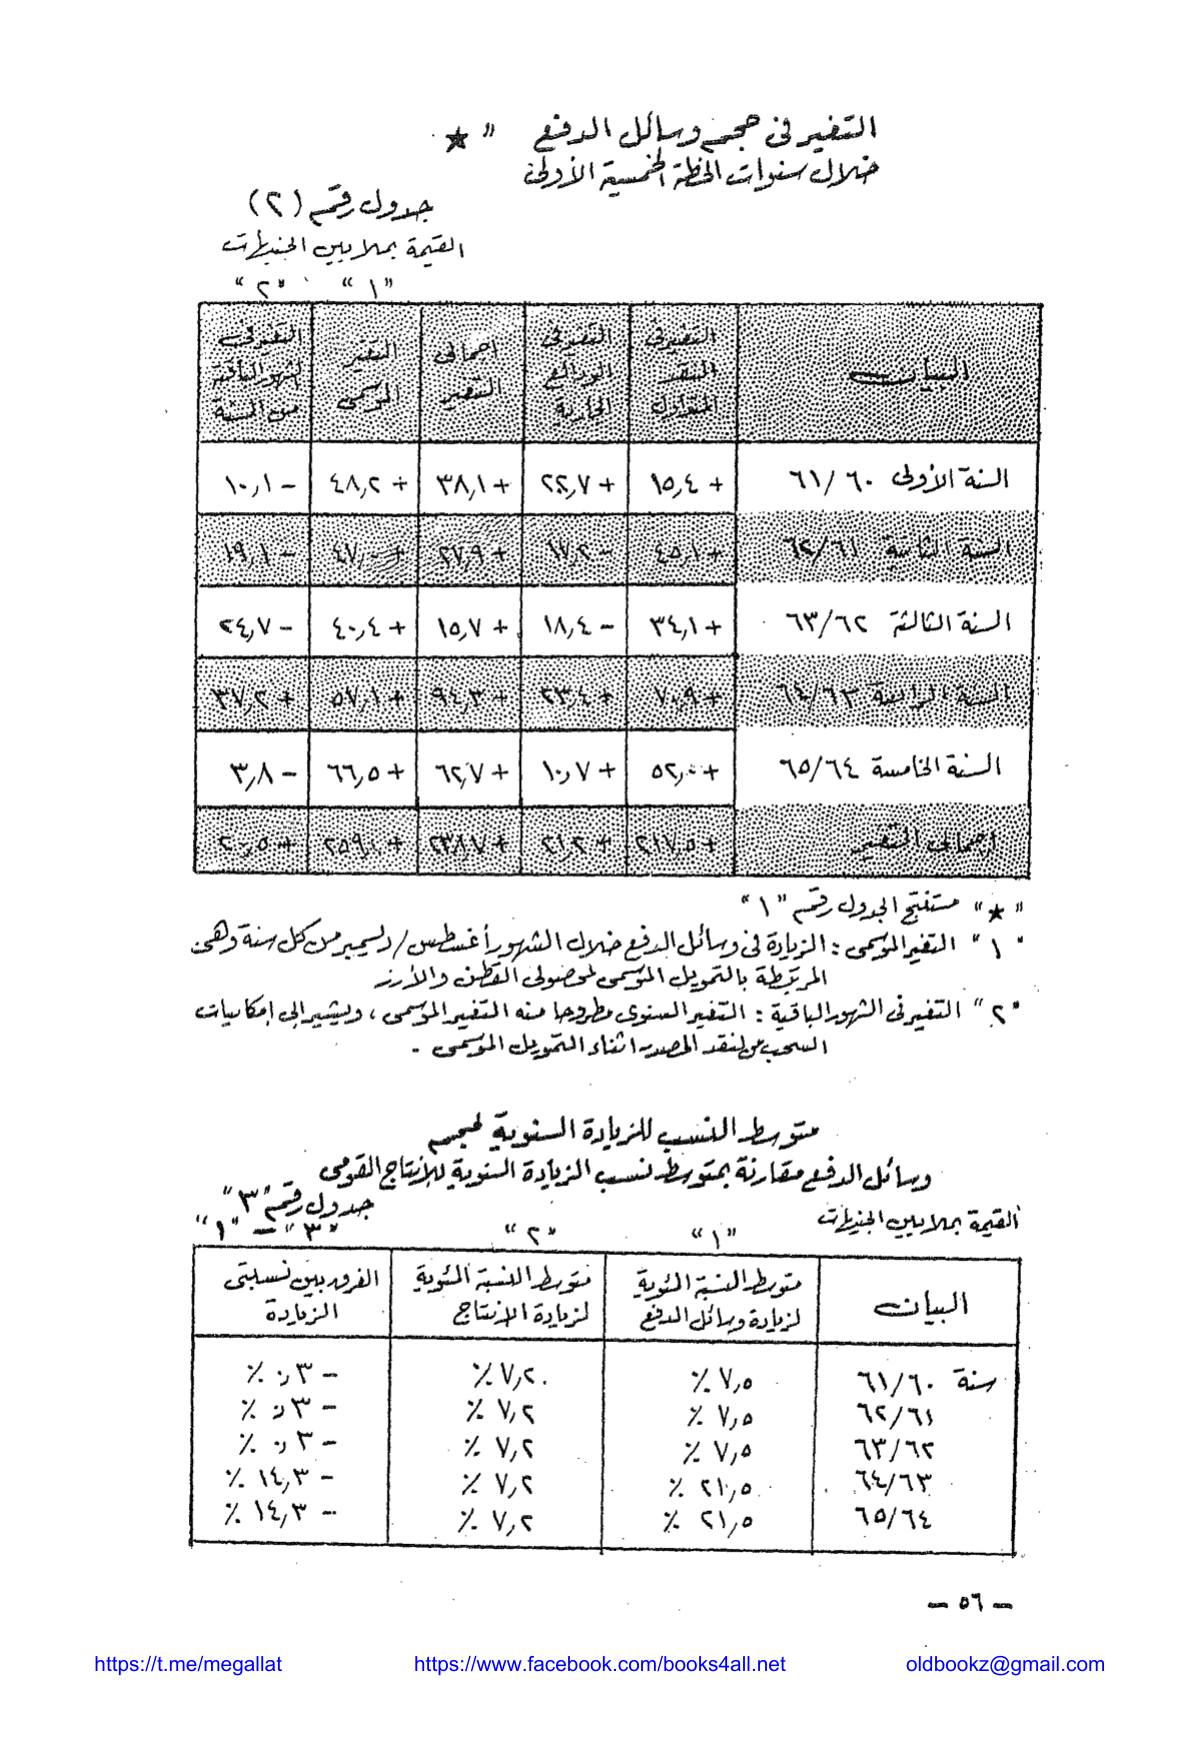 التغير فى حجم وسائل الدفع " ★
خلال سنوات الخطة الخمسية الأولى
جدول رقم (٢)
القيمة بملايين الجنيهات
"١" "٢"
البيان | التغير فى النقد المتداول | التغير فى الودائع الجارية | اجمالى التغير | التغير الموسمى | التغير فى الشهور الباقية من السنة
السنة الأولى ٦١/٦٠ | + ١٥,٤ | + ٢٢,٧ | + ٣٨,١ | + ٤٨,٢ | − ١٠,١
السنة الثانية ٦٢/٦١ | + ٤٥,١ | − ١٧,٢ | + ٢٧,٩ | + ٤٧,٠ | − ١٩,١
السنة الثالثة ٦٣/٦٢ | + ٣٤,١ | − ١٨,٤ | + ١٥,٧ | + ٤٠,٤ | − ٢٤,٧
السنة الرابعة ٦٤/٦٣ | + ٧٠,٩ | + ٢٣,٤ | + ٩٤,٣ | + ٥٧,١ | + ٣٧,٢
السنة الخامسة ٦٥/٦٤ | + ٥٢,٠ | + ١٠,٧ | + ٦٢,٧ | + ٦٦,٥ | − ٣,٨
إجمالى التغير | + ٢١٧,٥ | + ٢١,٢ | + ٢٣٨,٧ | + ٢٥٩,٢ | + ٢٠,٥
"★" مستنتج الجدول رقم "١"
"١" التغير الموسمى : الزيادة فى وسائل الدفع خلال الشهور أغسطس/ديسمبر من كل سنة وهى
المرتبطة بالتمويل الموسمى لمحصولى القطن والأرز
"٢" التغير فى الشهور الباقية : التغير السنوى مطروحا منه التغير الموسمى ، ويشير إلى إمكانيات
السحب من النقد المصدر اثناء التمويل الموسمى .
متوسط النسب للزيادة السنوية لحجم
وسائل الدفع مقارنة بمتوسط نسب الزيادة السنوية للإنتاج القومى
جدول رقم "٣"
القيمة بملايين الجنيهات
"١" "٢" "٣" − "١"
البيان | متوسط النسبة المئوية لزيادة وسائل الدفع | متوسط النسبة المئوية لزيادة الإنتاج | الفرق بين نسبتى الزيادة
سنة ٦١/٦٠ | ٧,٥ ٪ | ٧,٢ ٪ | − ٣,٠ ٪
٦٢/٦١ | ٧,٥ ٪ | ٧,٢ ٪ | − ٣,٠ ٪
٦٣/٦٢ | ٧,٥ ٪ | ٧,٢ ٪ | − ٣,٠ ٪
٦٤/٦٣ | ٢١,٥ ٪ | ٧,٢ ٪ | − ١٤,٣ ٪
٦٥/٦٤ | ٢١,٥ ٪ | ٧,٢ ٪ | − ١٤,٣ ٪
− ٥٦ −
https://t.me/megallat https://www.facebook.com/books4all.net oldbookz@gmail.com